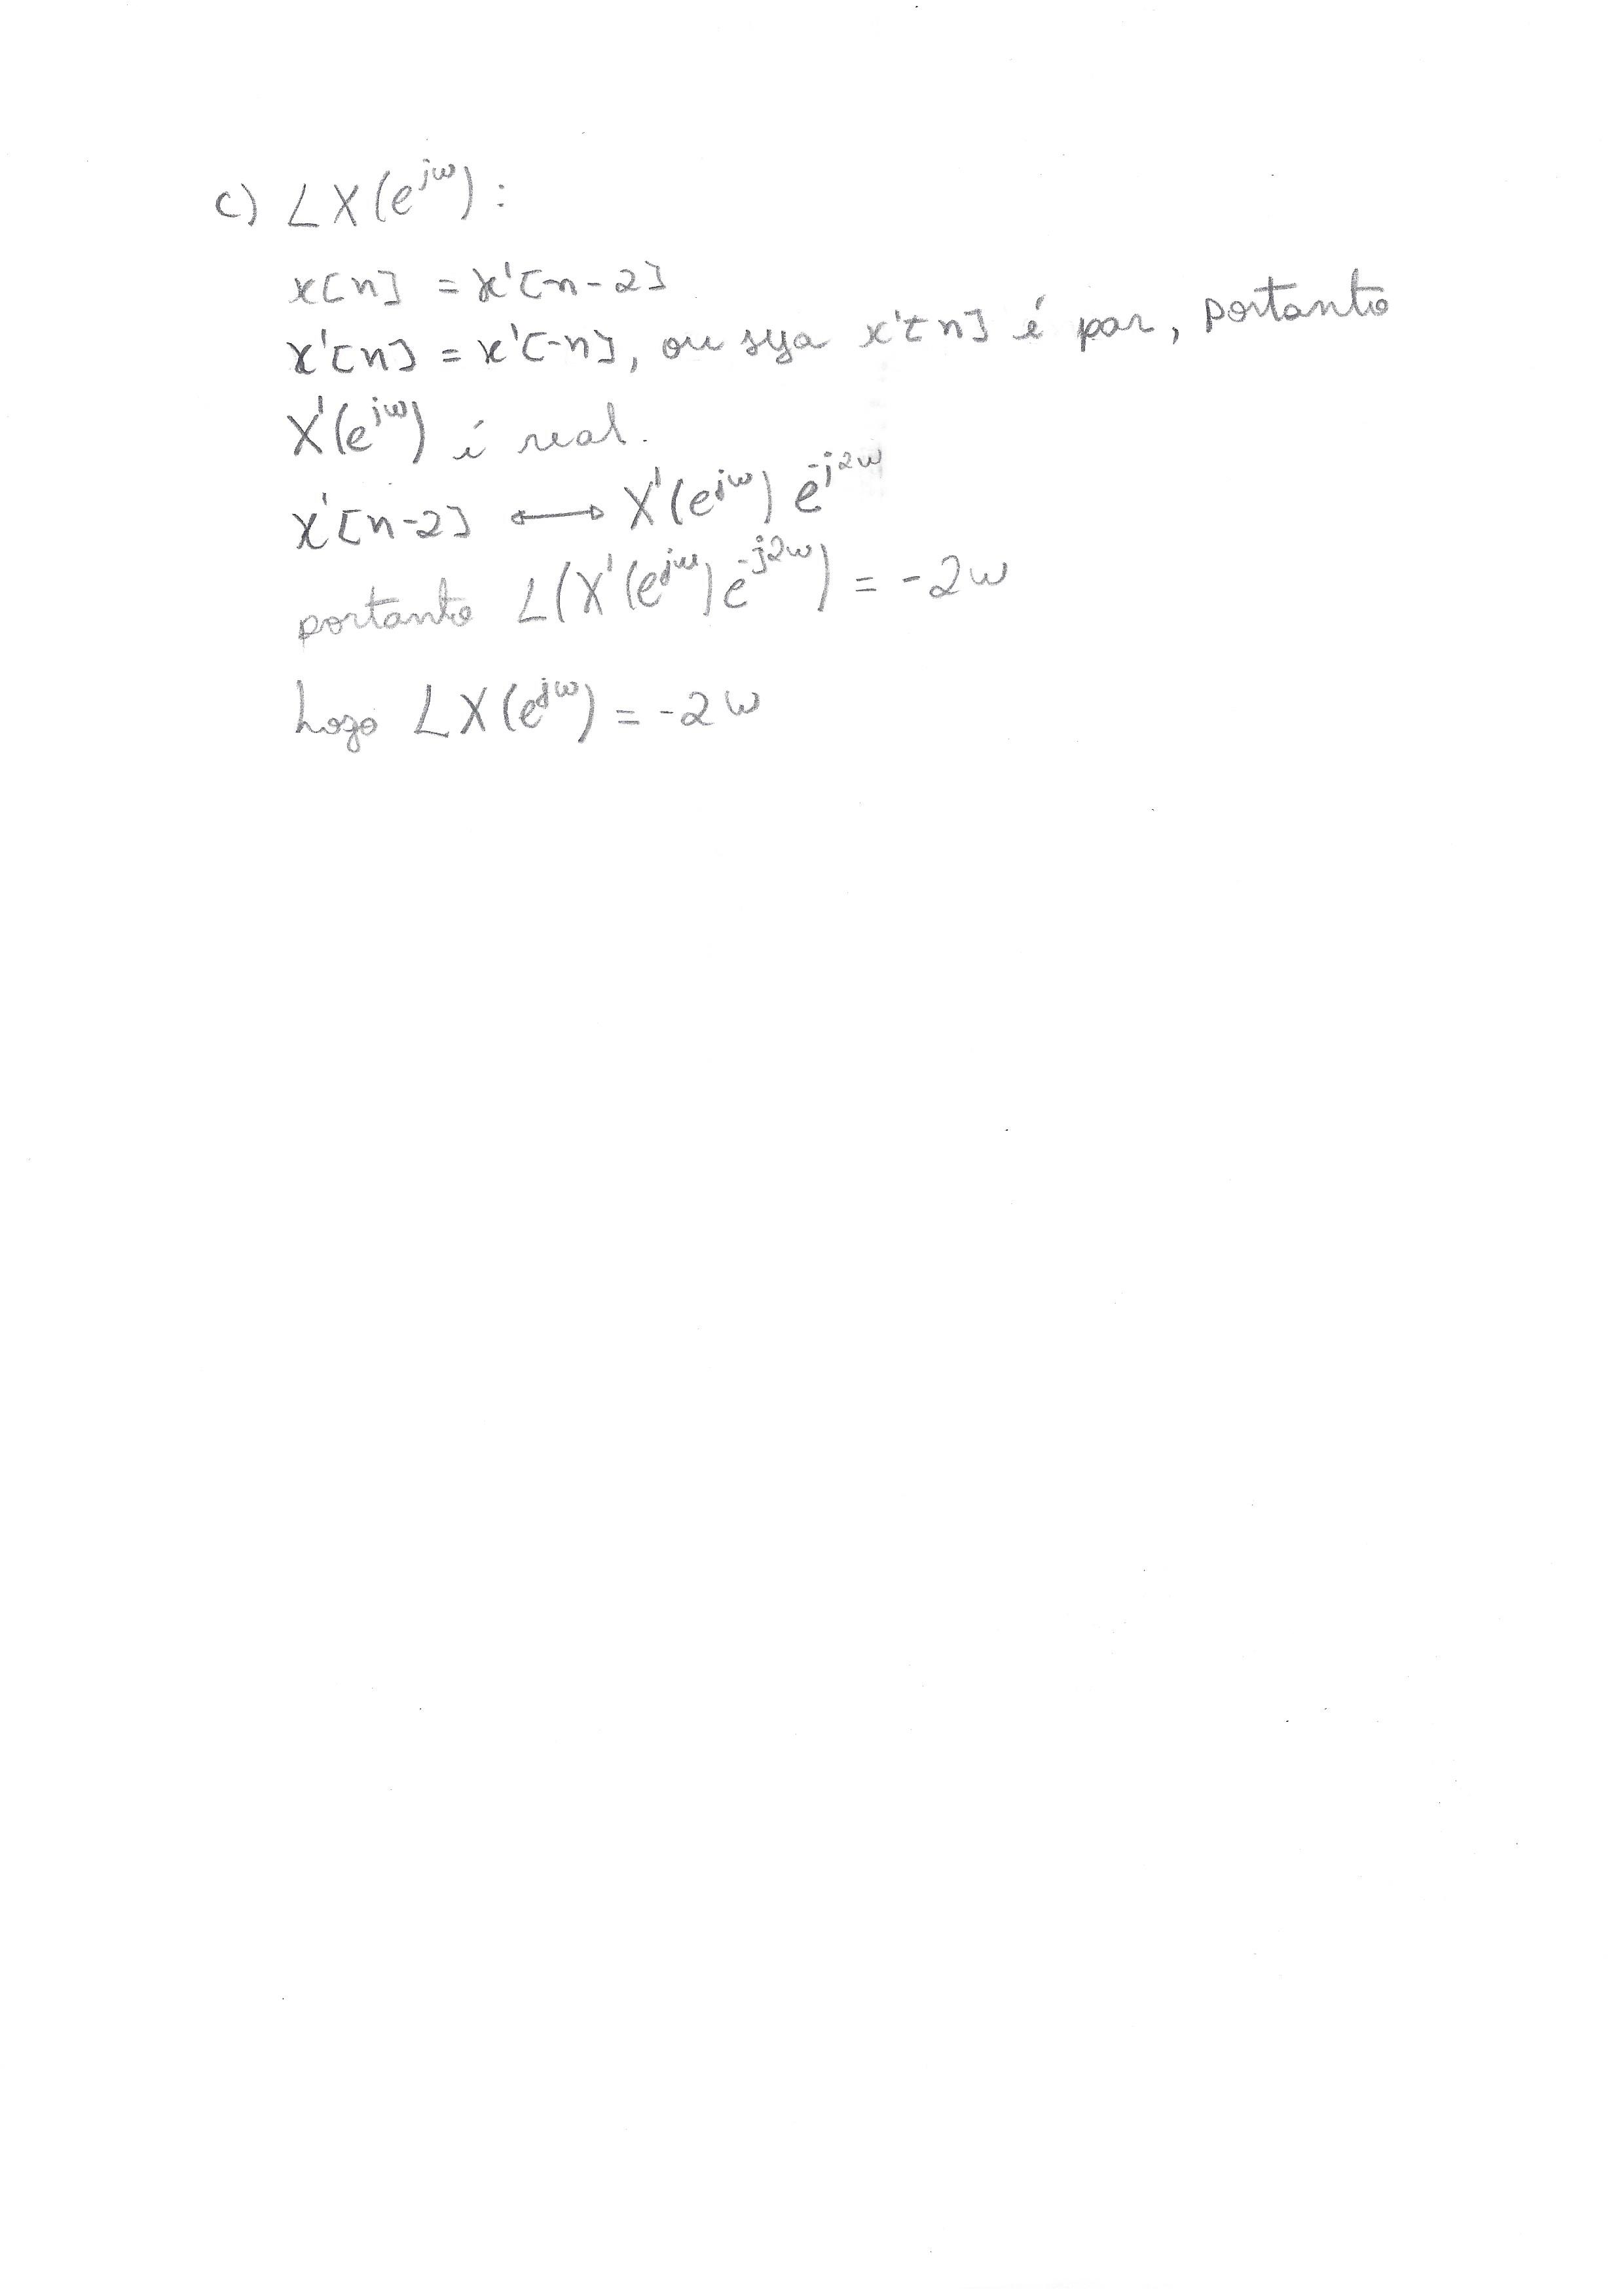 c) ∠X(e^{jω}):
x[n] = x'[n-2]
x'[n] = x'[-n], ou seja x'[n] é par, portanto
X'(e^{jω}) é real.
x'[n-2] ⟷ X'(e^{jω}) e^{-j2ω}
portanto ∠(X'(e^{jω}) e^{-j2ω}) = -2ω
Logo ∠X(e^{jω}) = -2ω